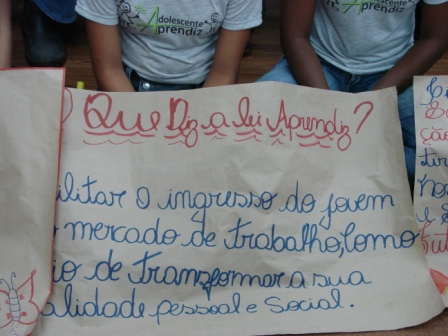 Adolescente
Aprendiz
Adolescente
Aprendiz
Que Diz a lei Aprendiz?
ilitar o ingresso do jovem
mercado de trabalho, como
io de transformar a sua
alidade pessoal e social.